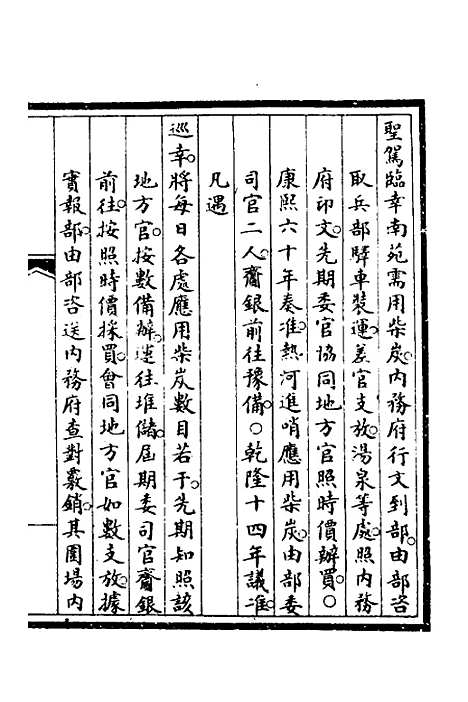 聖駕臨幸南苑需用柴炭。內務府行文到部。由部咨
取兵部驛車裝運。差官支放。湯泉等處。照內務
府印文。先期委官協同地方官照時價辦買。○
康熙六十年奏准。熱河進哨應用柴炭。由部委
司官二人。齎銀前往豫備。○乾隆十四年議准。
凡遇
巡幸。將每日各處應用柴炭數目若干。先期知照該
地方官。按數備辦。運往堆儲。屆期委司官齎銀
前往。按照時價採買。會同地方官如數支放。據
實報部。由部咨送內務府查對覈銷。其圍場內